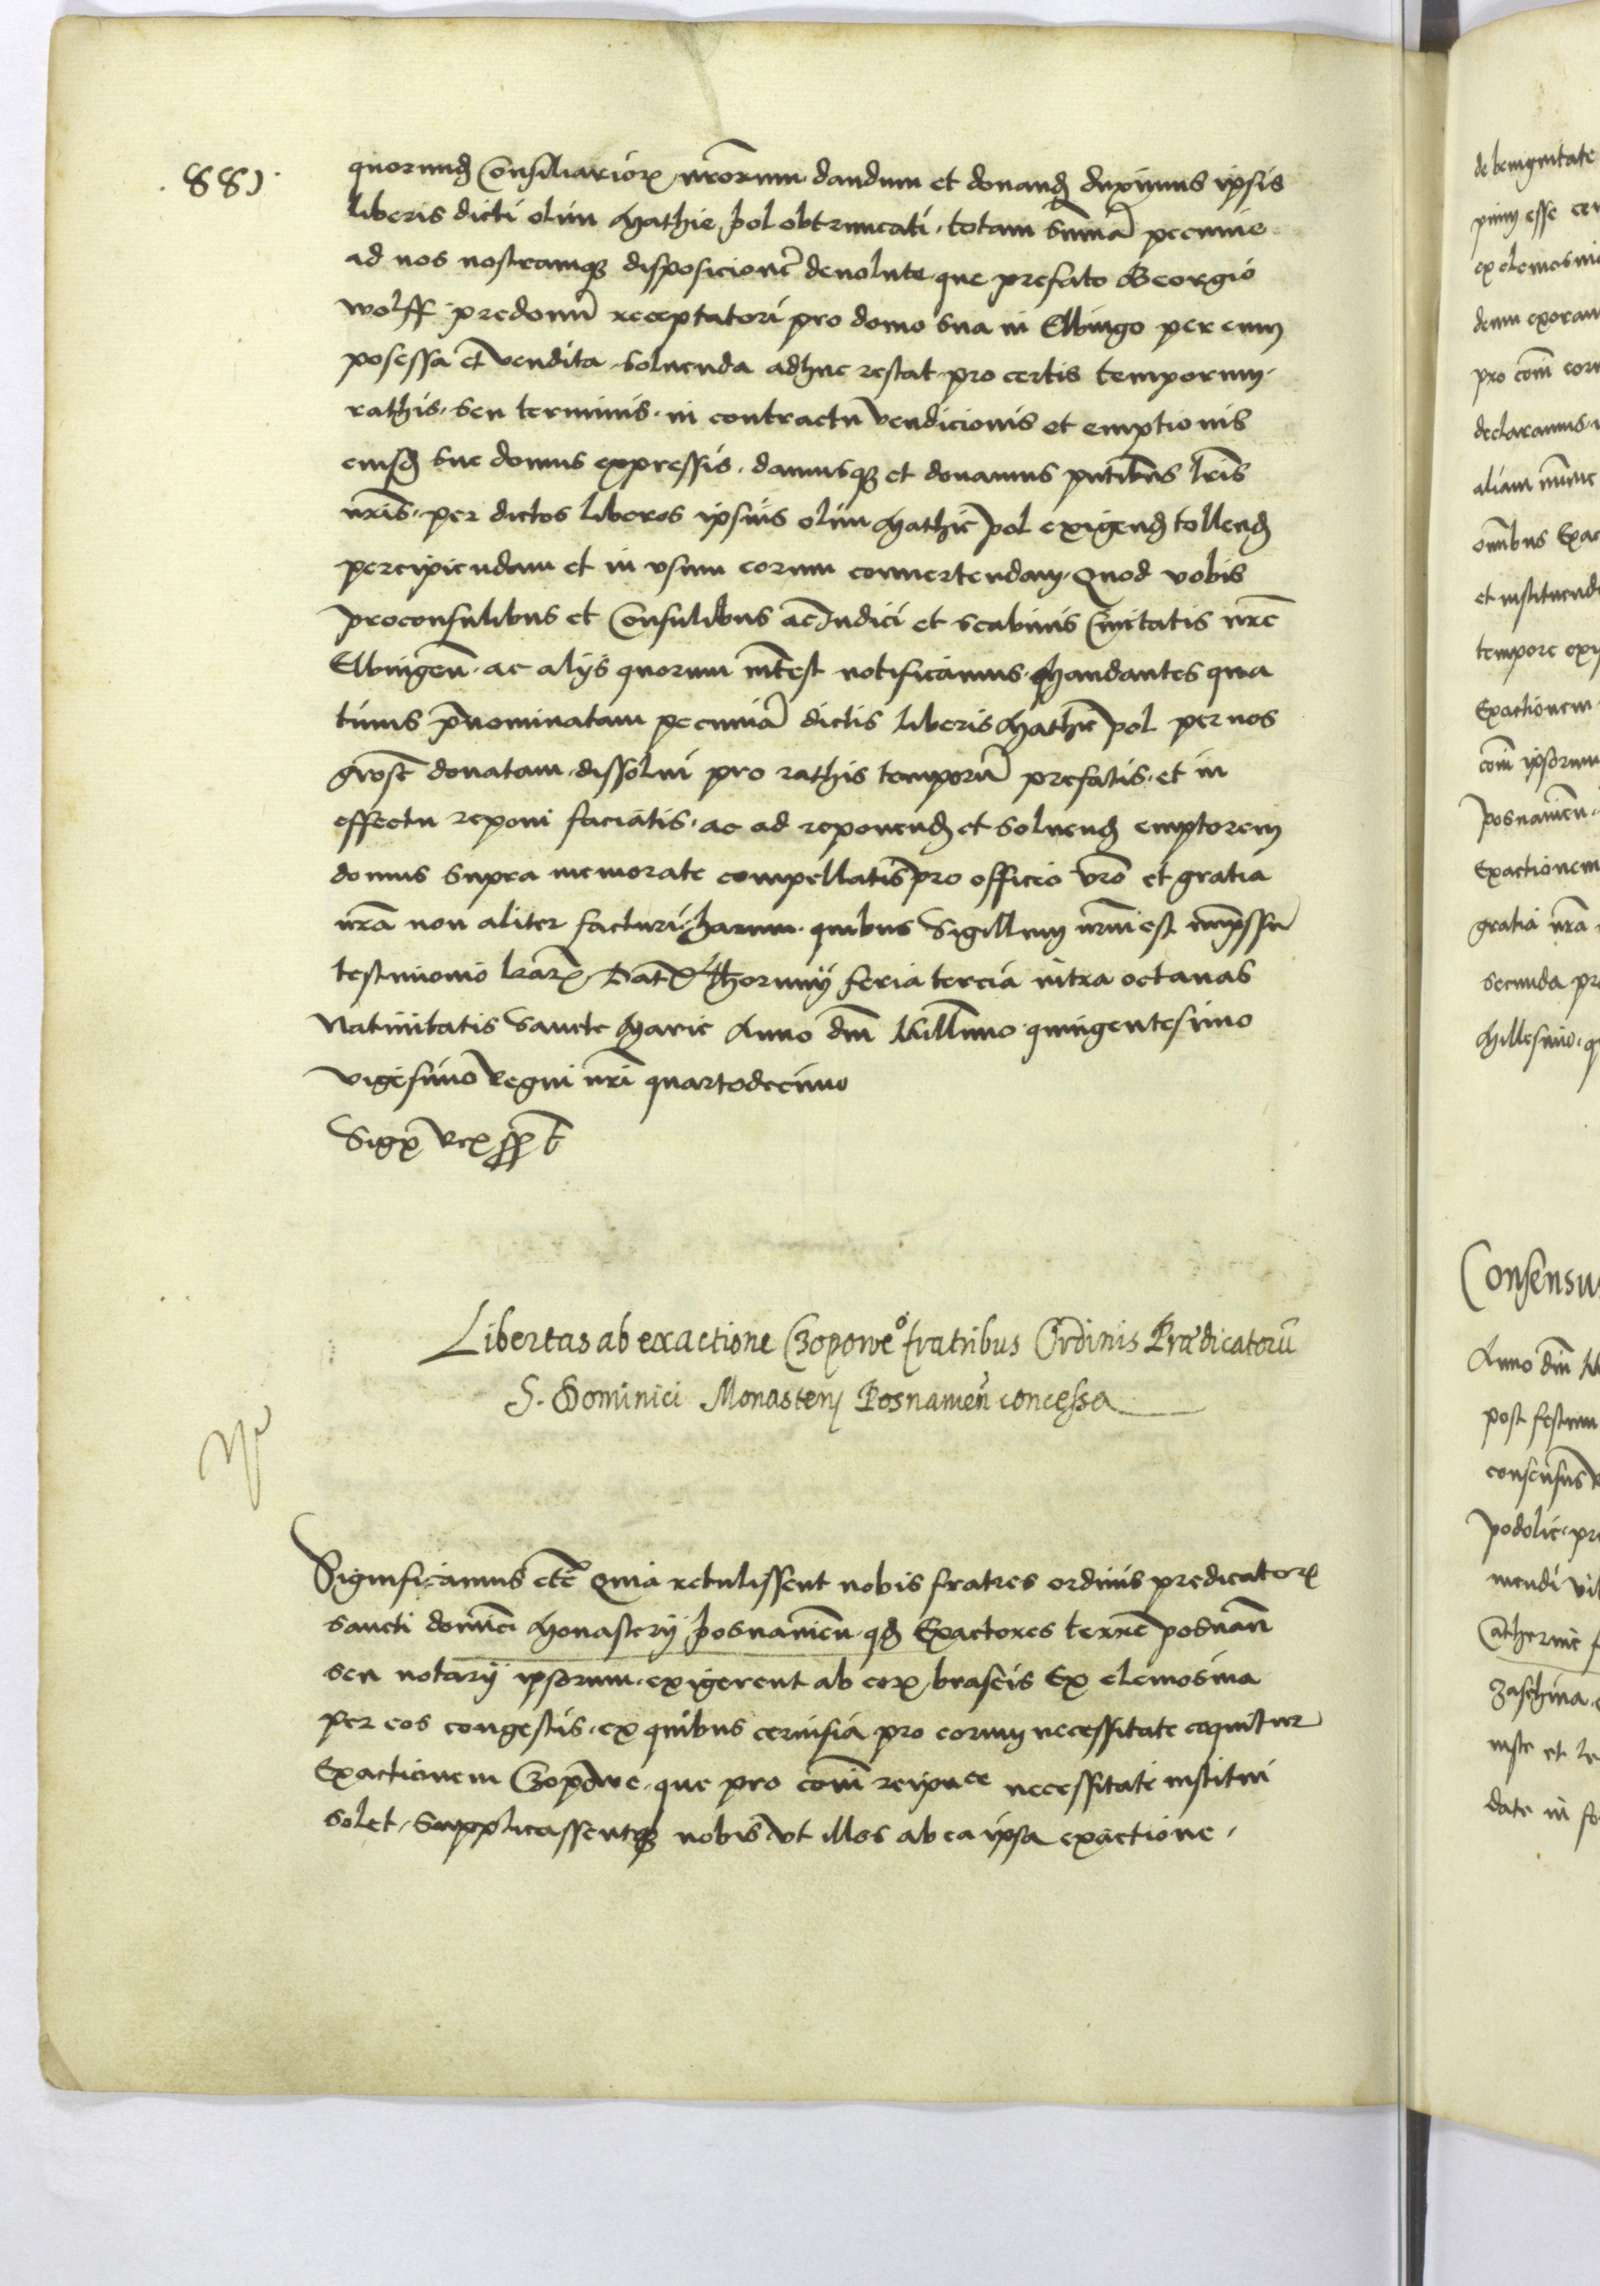 .881.
quorund Consiliarior nrorum dandum et donand duximus ipsis
liberis dicti olim Mathie pol obtruncati. totam sumā pecunie
ad nos nostramq disposicionē devolute que prefato Georgio
wolff predonū receptatori pro domo sua in Elbingo per eum
possessa et vendita solvenda adhuc restat pro certis temporum.
rathis. seu terminis. in contractu vendicionis et emptionis
eiusd sue domus expressis. damusq et donamus pntibus lris
nris. per dictos liberos ipsius olim Mathie pol exigend tollend
percipiendam et in usum eorum convertendam. Quod vobis
proconsulibus et Consulibus ac Iudici et scabinis Civitatis nre
Elbingen. ac alijs quorum intest notificamus. Mandantes qua
tinus pnominatam pecuniā dictis liberis Mathie pol per nos
donatam. dissolvi pro rathis temporū prefatis. et in
effectu reponi faciatis. ac ad reponend et solvend emptorem
domus supra memorate compellatis pro officio vro et gratia
nra non aliter facturi. harum quibus Sigillum nrum est impssū
testimonio lrar. Dat Thorunij feria tercia intra octavas
Nativitatis Sancte Marie Anno dni Millimo quingentesimo
vigesimo Regni nri quartodecimo
Sigs Rex sspt
Libertas ab exactione Czopowe fratribus Ordinis Prædicatorū
S. Dominici Monasterij Posnanien concessa
Significamus etc Quia retulissent nobis fratres ordinis predicator
sancti dominici Monasterij posnanien. qd Exactores terre posnan
seu notarij ipsorum. exigerent ab eor braseis Ex elemosina
per eos congestis. ex quibus cervisia pro eorum necessitate coquitur
Exactionem Czopowe. que pro coni reipuce necessitate institui
solet. Supplicassentq nobis ut illos ab ea ipsa exactione.
de benignitate
pium esse
ex elemosin
deum exoran
pro coni eor
declaramus
aliam nunc
omnibus Exac
et instituend
tempore exi
Exactionem
coni ipsorum
posnanien
Exactionem
gratia nra
secunda pr
Millesimo q
Consensus
Anno dni M
post festum
consensus
podolie. pr
mendi vil
Catherine f
Zaschina
iuste et le
date in fo